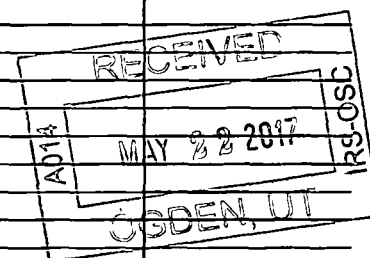 RECEIVED
A014
MAY 22 2017
IRS-OSC
OGDEN, UT